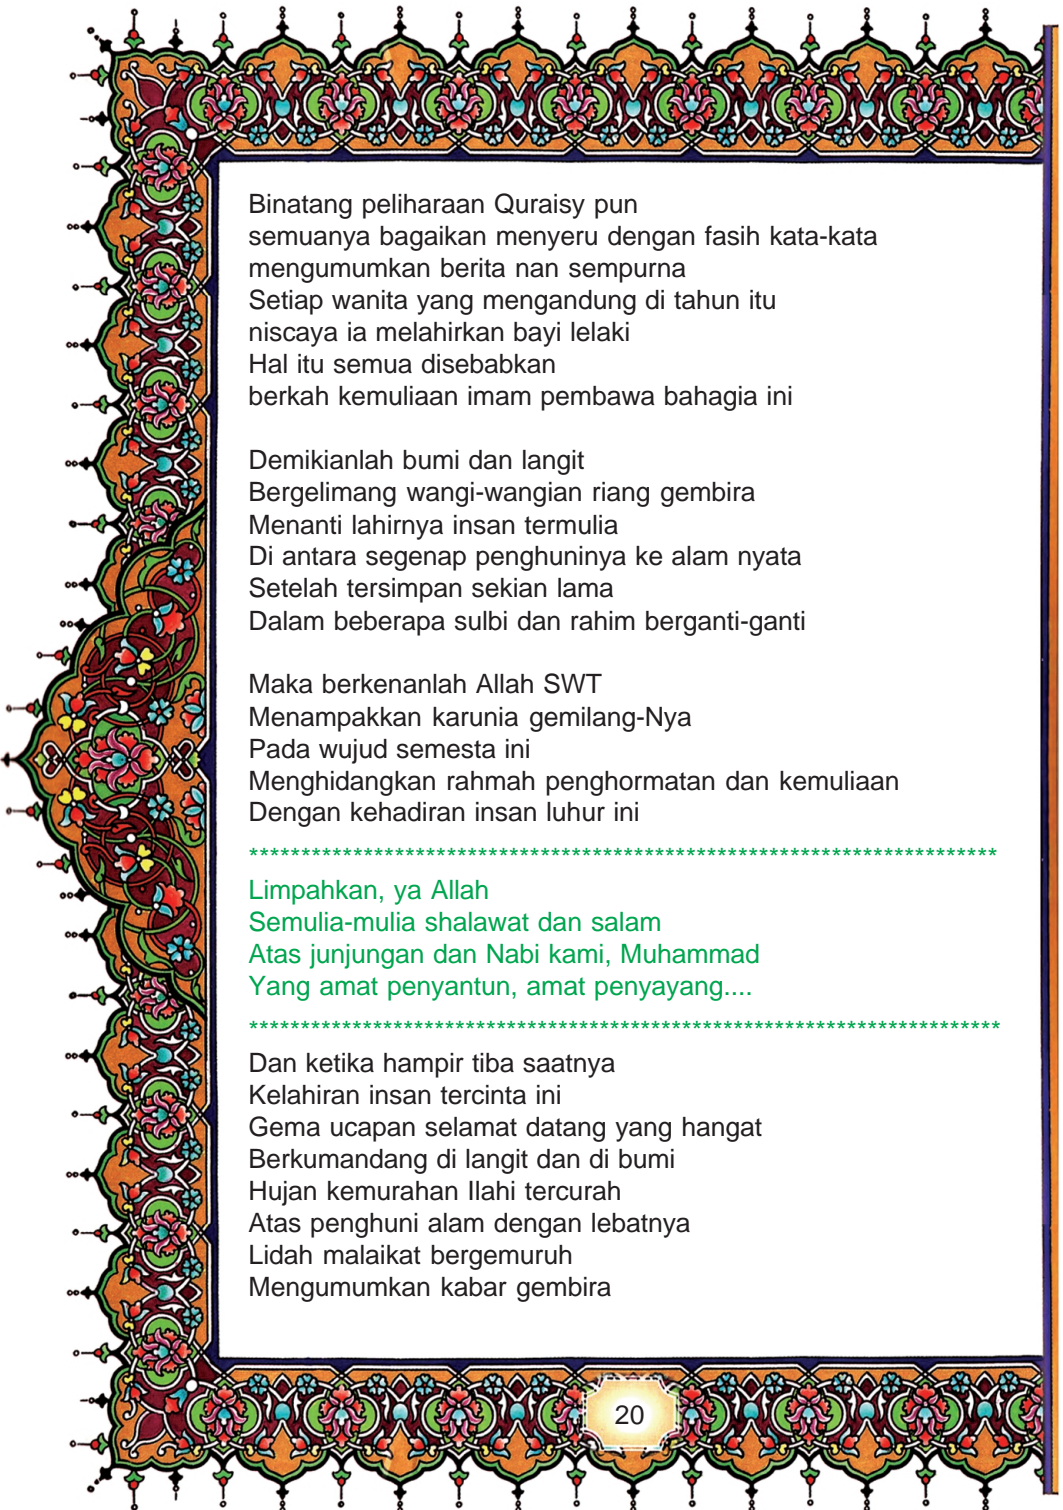 Binatang peliharaan Quraisy pun
semuanya bagaikan menyeru dengan fasih kata-kata
mengumumkan berita nan sempurna
Setiap wanita yang mengandung di tahun itu
niscaya ia melahirkan bayi lelaki
Hal itu semua disebabkan
berkah kemuliaan imam pembawa bahagia ini

Demikianlah bumi dan langit
Bergelimang wangi-wangian riang gembira
Menanti lahirnya insan termulia
Di antara segenap penghuninya ke alam nyata
Setelah tersimpan sekian lama
Dalam beberapa sulbi dan rahim berganti-ganti

Maka berkenanlah Allah SWT
Menampakkan karunia gemilang-Nya
Pada wujud semesta ini
Menghidangkan rahmah penghormatan dan kemuliaan
Dengan kehadiran insan luhur ini
************************************************************************
Limpahkan, ya Allah
Semulia-mulia shalawat dan salam
Atas junjungan dan Nabi kami, Muhammad
Yang amat penyantun, amat penyayang....
************************************************************************
Dan ketika hampir tiba saatnya
Kelahiran insan tercinta ini
Gema ucapan selamat datang yang hangat
Berkumandang di langit dan di bumi
Hujan kemurahan Ilahi tercurah
Atas penghuni alam dengan lebatnya
Lidah malaikat bergemuruh
Mengumumkan kabar gembira
20